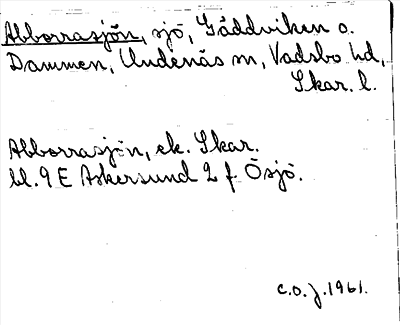 Abborrasjön, sjö, Gäddviken o.
Dammen, Undenäs sn, Vadsbo hd,
Skar. l.
Abborrasjön, ek. Skar.
bl. 9 E Askersund 2 f Ösjö.
C.O.J. 1961.